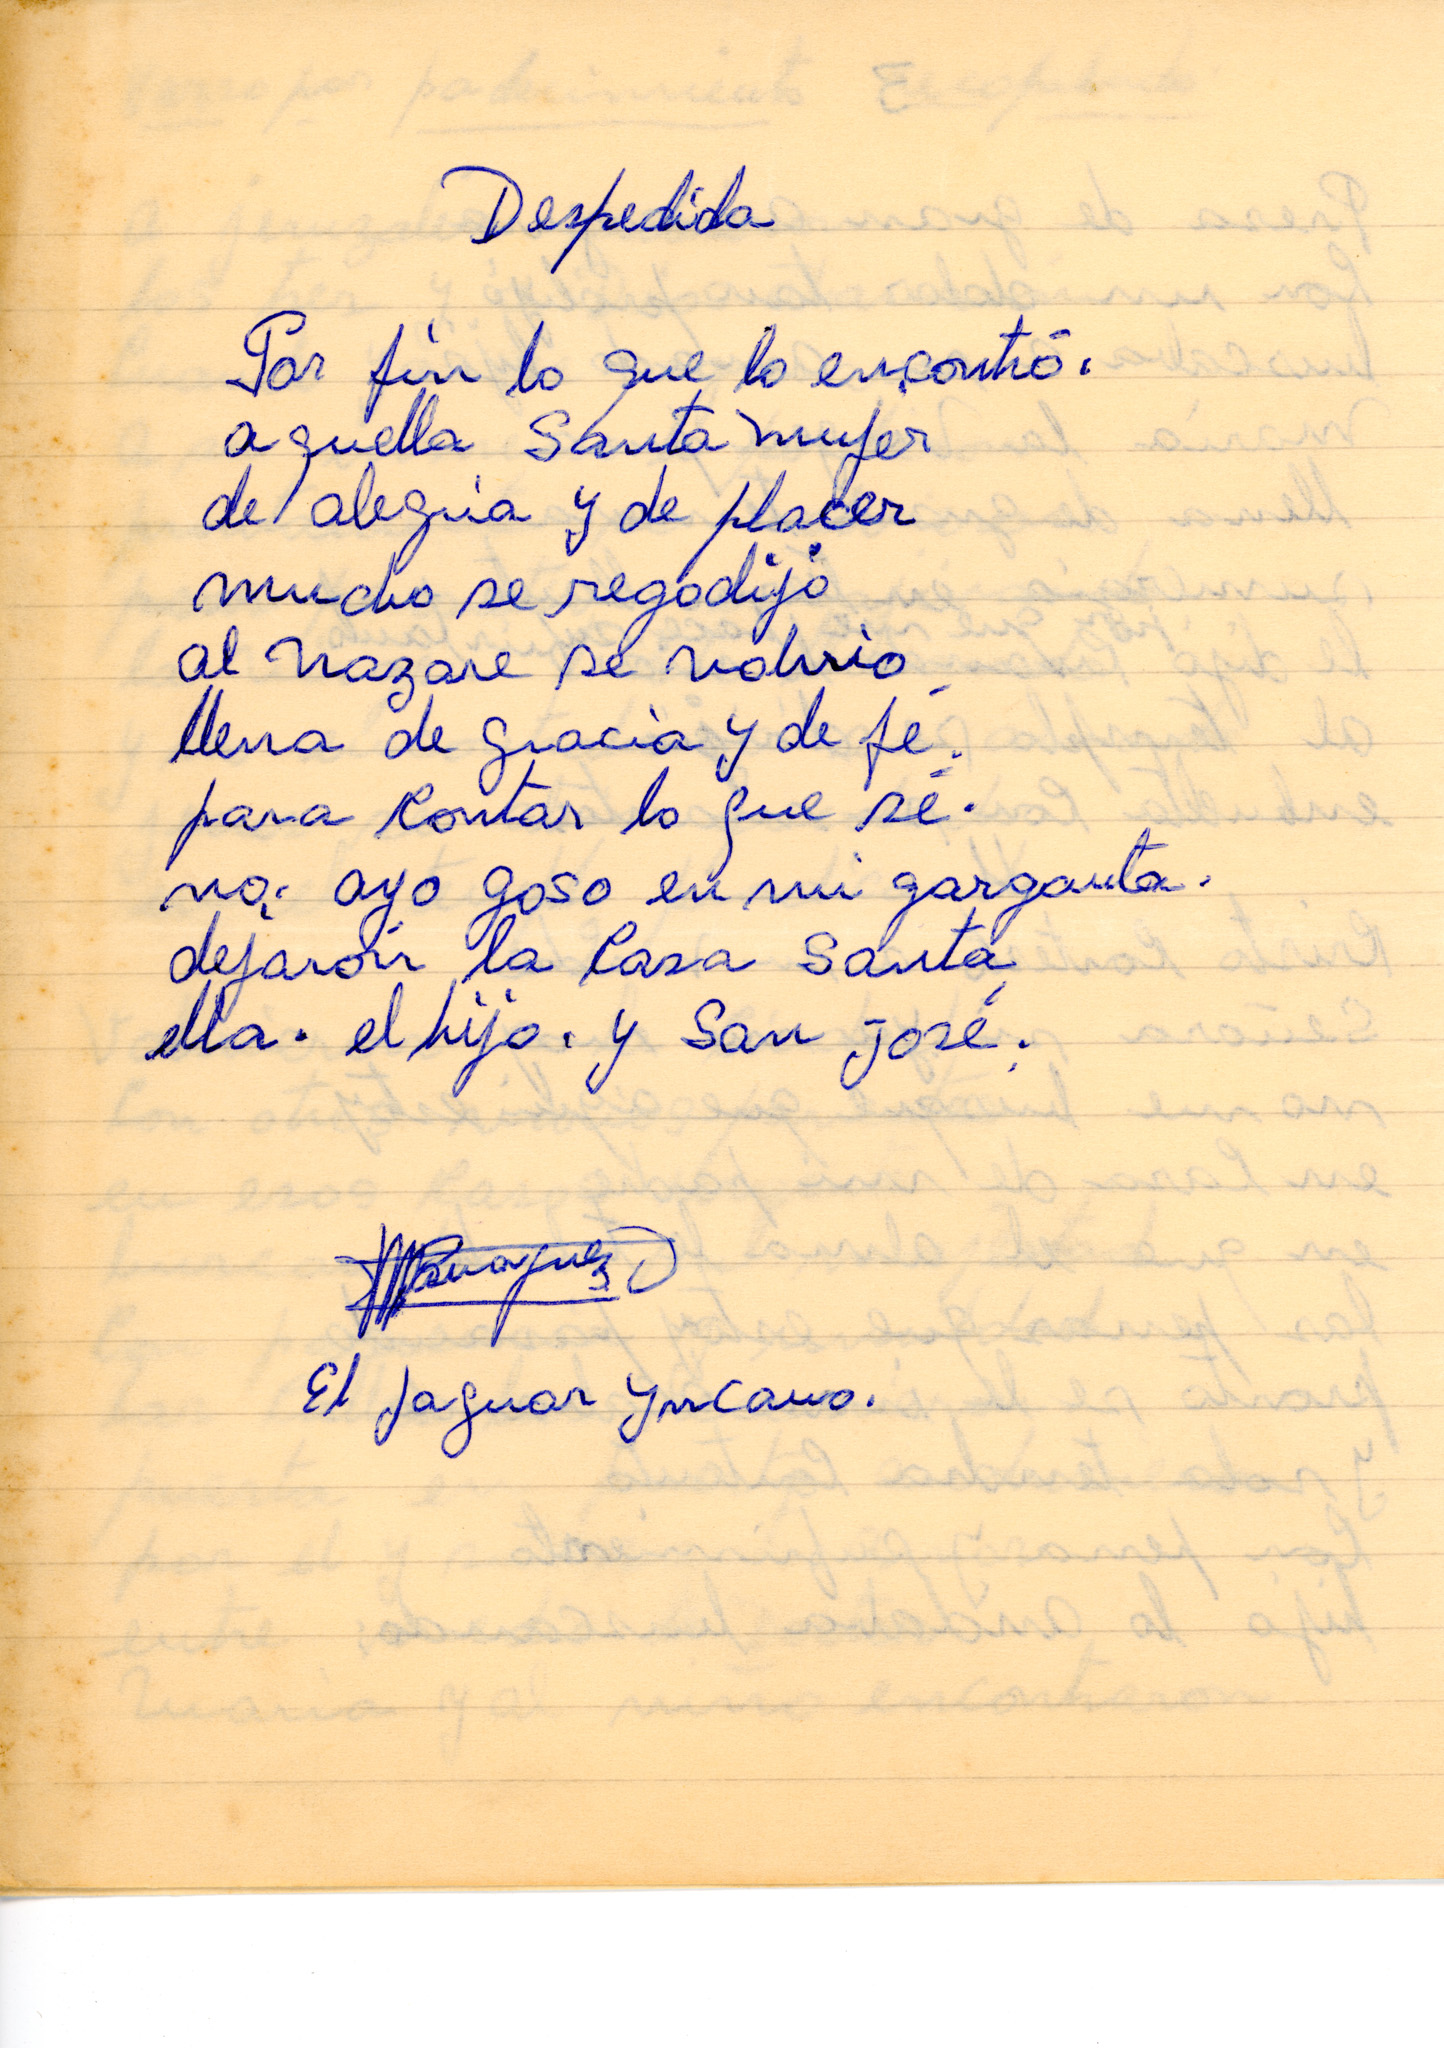 Despedida
Por fin lo que lo encontró.
aquella Santa mujer
de alegria y de placer
mucho se regodijó
al nazare se volvio
llena de gracia y de fé.
para contar lo que sé.
no. ayo goso en mi garganta.
dejaron la casa Santa
ella. el hijo. y San José.
El Jaguar yncano.